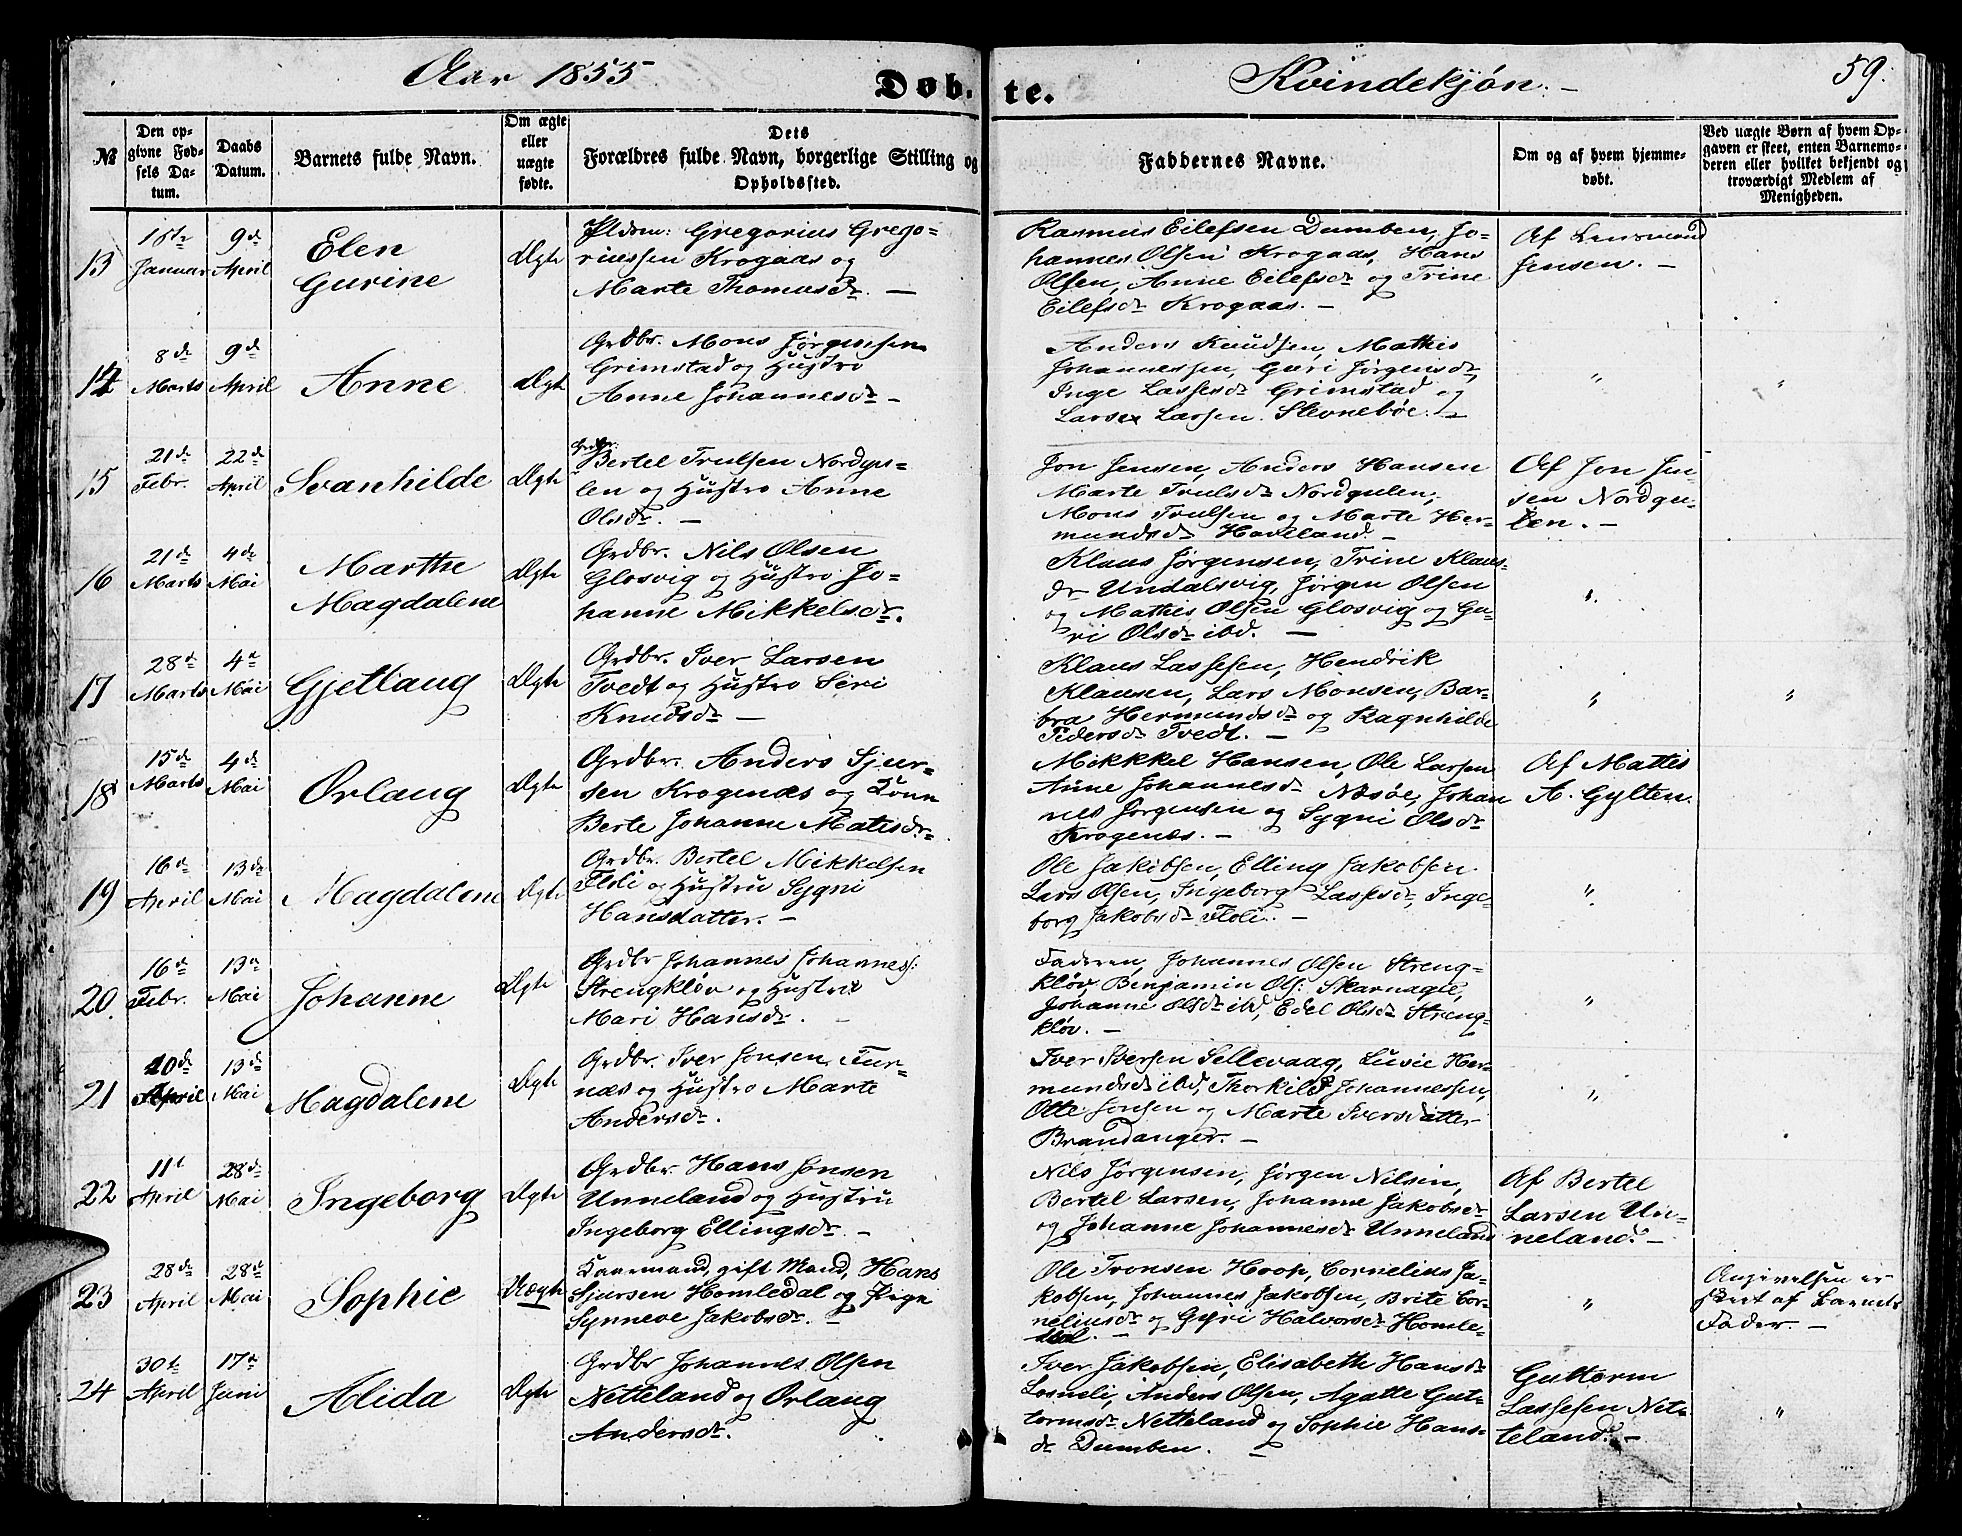 Aar 1855
Døb-
te.
Kvindekjøn. —
59.
№
Den op-
givne Fød-
sels Da-
tum.
Daabs
Datum.
Barnets fulde Navn.
Om ægte
eller
uægte
fødte.
Dets
Forældres fulde Navn, borgerlige Stilling og
Opholdssted.
Faddernes Navne.
Om og af hvem hjemme-
døbt.
Ved uægte Børn af hvem Op-
gaven er skeet, enten Barnemo-
deren eller hvilket bekjendt og
troværdigt Medlem af
Menigheden.
13
Januar
9de
April
Elen
Gurine
Ægte
Gregorius Grego-
riussen Krogaas og
Marte Thomasdr. —
Rasmus Eilefsen Dumben, Jo-
hannes Olsen Krogaas, Hans
Olsen, Anne Eilefsdr og Trine
Eilefsdr Krogaas. —
Af Lensmand
Jensen. —
14
8de
Marts
9de
April
Anne
Ægte
Grdbr. Mons Jørgensen
Grimstad og Hustro
Anne Johannesdr —
Anders Knudsen, Mathis
Johannessen, Guri Jørgensdr,
Inge Lassesdr Grimstad og
Larsen Stevnebøe. —
"
"
15
21de
Febr.
22de
April
Svanhilde
Ægte
Grdbr.
Bertel Trulsen Nordgu-
len og Hustro Anne
Olsdr. —
Jon Jensen, Anders Hansen
Marte Trulsdr Nordgulen,
Mons Trulsen og Marte Her-
mundsdr Haveland. —
Af Jon Jen-
sen Nordgu-
len. —
16
21de
Marts
4de
Mai
Marthe
Magdalene
Ægte
Grdbr. Nils Olsen
Glosvig og Hustro Jo-
hanne Mikkelsdr.
Klaus Jørgensen, Trine Klaus-
dr Undalsvig, Jørgen Olsen
og Mathis Olsen Glosvig og Gu-
ri Olsdr ibd. —
"
17
28de
Marts
4de
Mai
Gjetlaug
Ægte
Grdbr. Iver Larsen
Tvedt og Hustro Siri
Knudsdr —
Klaus Lassesen, Hendrik
Klausen, Lars Monsen, Bar-
bra Hermundsdr og Ragnhilde
Pedersdr Tvedt. —
"
"
18
15de
Marts
4de
Mai
Ørlaug
Ægte
Grdbr. Anders Sjur-
sen Krogenæs og Kone
Berte Johanne Matisdr.
Mikkkel Hansen, Ole Larsen
Anne Johannesdr Næsøe, Johan
nes Jørgensen og Sygni Olsdr
Krogenæs. —
Af Mattis
A. Gylten.
19
16de
April
13de
Mai
Magdalene
Ægte
Grdbr. Bertel Mikkelsen
Floli og Hustru Sygni
Hansdatter. —
Ole Jakobsen, Elling Jakobsen
Lars Olsen, Ingeborg Lassesdr, Inge-
borg Jakobsdr Floli. —
"
20.
16de
Febr.
13de
Mai
Johanne
Ægte
Grdbr Johannes Johanness:
Strengkløv og Hustru
Mari Hansdr. —
Faderen, Johannes Olsen Streng-
kløv Benjamin Ols: Skarnagel,
Johanne Olsdr ibd, Edel Olsdr Streng-
kløv. —
"
21
10de
April
13de
Mai
Magdalene
Ægte
Grdbr. Iver Jonsen Fur-
næs og Hustro Marte
Andersdr.
Iver Iversen Sellevaag, Lusie Her-
mundsdr ibd, Thorkild Johannessen,
Otte Jonsen og Marte Iversdatter
Brandanger. —
"
22
11te
April
28de
Mai
Ingeborg
Ægte
Grdbr. Hans Jonsen
Unneland og Hustru
Ingeborg Ellingsdr. —
Nils Jørgensen, Jørgen Nilsen,
Bertel Larsen, Johanne Jakobsdr
og Johanne Johannesdr Unneland
Af Bertel
Larsen Un-
neland. —
23
28de
April
28de
Mai
Sophie
Uægte
Kaarmand, gift Mand, Hans
Sjursen Homledal og Pige
Synneve Jakobsdr. —
Ole Tronsen Hoop, Cornelius Ja-
kobsen, Johannes Jakobsen, Brite Cor-
neliusdr og Gyri Halvorsdr Homle-
dal. —
"
Angivelsen er
skeet af Barnets
Fader. —
24
30te
April
17de
Juni
Alida
Ægte
Grdbr Johannes Olsen
Netteland og Ørlaug
Andersdr.
Iver Jakobsen, Elisabeth Hansdr
Losneli, Anders Olsen, Agatte Gut-
tormsdr Netteland og Sophie Hans-
dr Dumben.
Guttorm
Lassesen Net-
teland. —
"